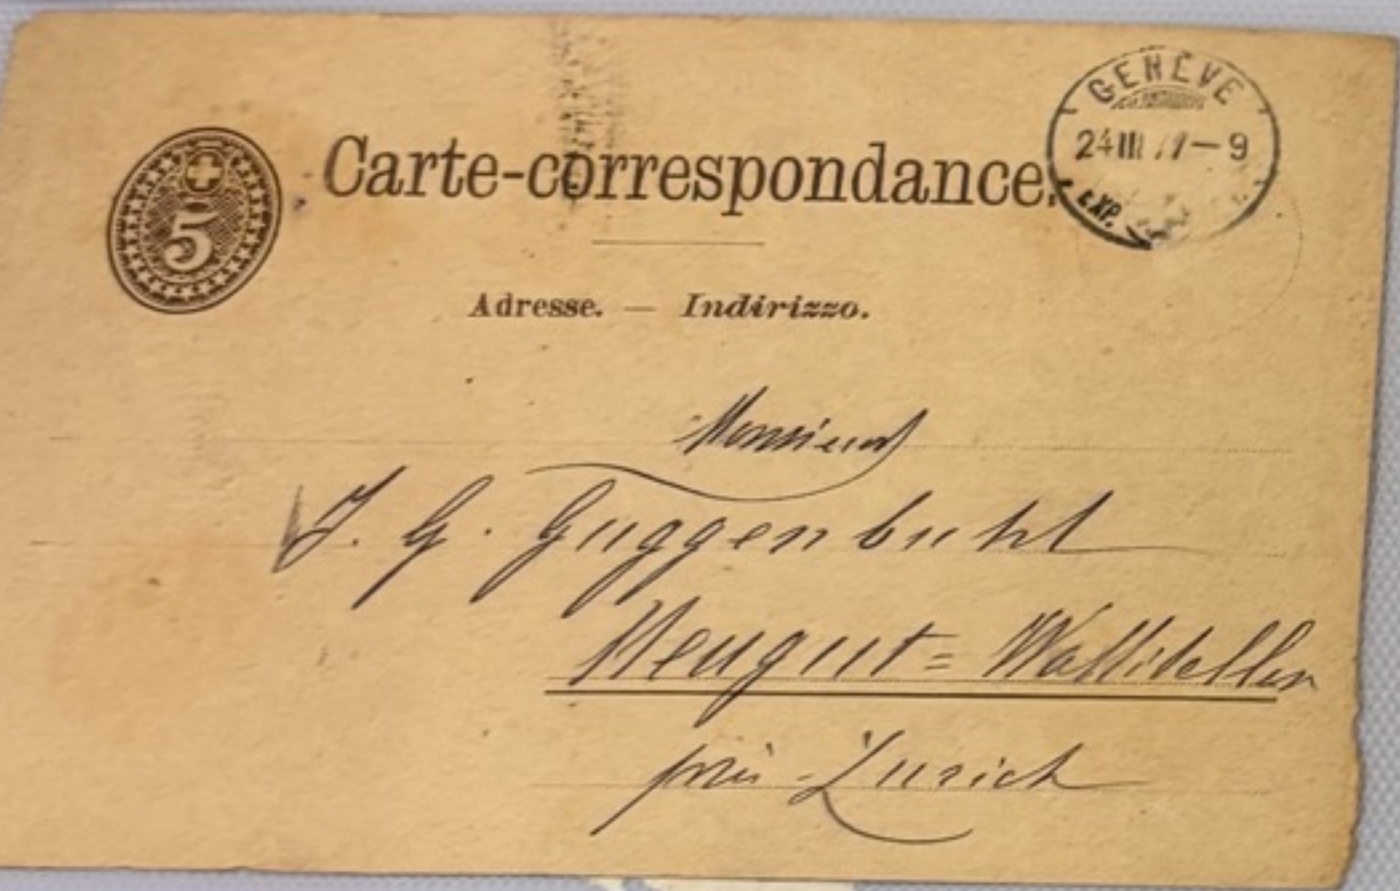 5
Carte-correspondance.
GENÈVE
24 III 77-9
EXP.
Adresse. — Indirizzo.
Monsieur
J. G. Guggenbühl
Neugut = Wallisellen
près Zurich